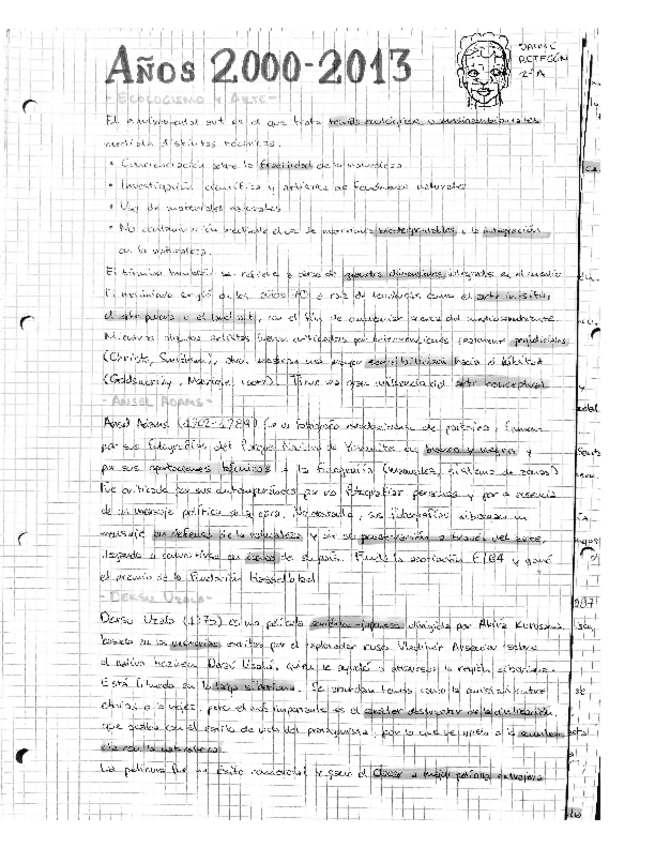 Años 2000-2013
JAIME
2ºA
- ECOLOGISMO Y ARTE -
El environmental art es el que trata temas ecológicos o medioambientales
mediante distintas técnicas.
• Concienciación sobre la fragilidad de la naturaleza
• Investigación científica y artística de fenómenos naturales
• Uso de materiales naturales
• No contaminación mediante el uso de materiales biodegradables y la integración
en la naturaleza.
El término también se refiere a obras de grandes dimensiones, integradas en el medio
El movimiento surgió de los años a raíz de tendencias como el arte in situ,
el arte povera o el land art, con el fin de
Mientras algunos artistas fueron criticados por intervenciones perjudiciales
(Christo, Smithson), otros una mayor hacia el hábitat
(Goldsworthy, ). Tiene una gran influencia del arte conceptual
- ANSEL ADAMS -
Ansel Adams (1902-1984) fue un fotógrafo estadounidense de paisajes, famoso
por sus fotografías del Parque Nacional de Yosemite en blanco y negro y
por sus aportaciones técnicas a la fotografía (manuales, sistema de zonas)
Fue criticado por sus contemporáneos por no fotografiar personas y por la ausencia
de un mensaje político en la obra. No obstante, sus fotografías un
mensaje en defensa de la naturaleza y en su preservación a través del arte,
llegando a convertirse en de su país. Fundó la asociación F/64 y ganó
el premio de la Fundación Hasselblad
- DERSU UZALA -
Dersu Uzala (1975) es una película soviético-japonesa dirigida por Akira Kurosawa,
basada en las memorias escritas por el explorador ruso Vladimir Arseniev sobre
el nativo Dersú Uzalá, quien le ayudó a atravesar la región siberiana.
Está filmada en la taiga siberiana. Se abordan temas como la amistad
o la vejez, pero el más importante es el carácter destructor de la civilización,
que acaba con el estilo de vida del protagonista, por lo que se
con la naturaleza.
La película fue un éxito comercial y ganó el Óscar a mejor película extranjera